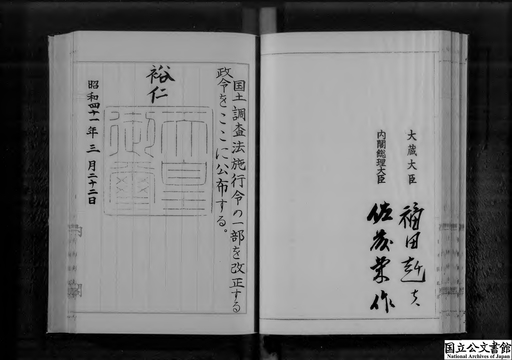 大蔵大臣
福田赳夫
内閣総理大臣
佐藤栄作
国土調査法施行令の一部を改正する
政令をここに公布する。
裕仁
天皇
御璽
昭和四十一年三月二十二日
国立公文書館
National Archives of Japan